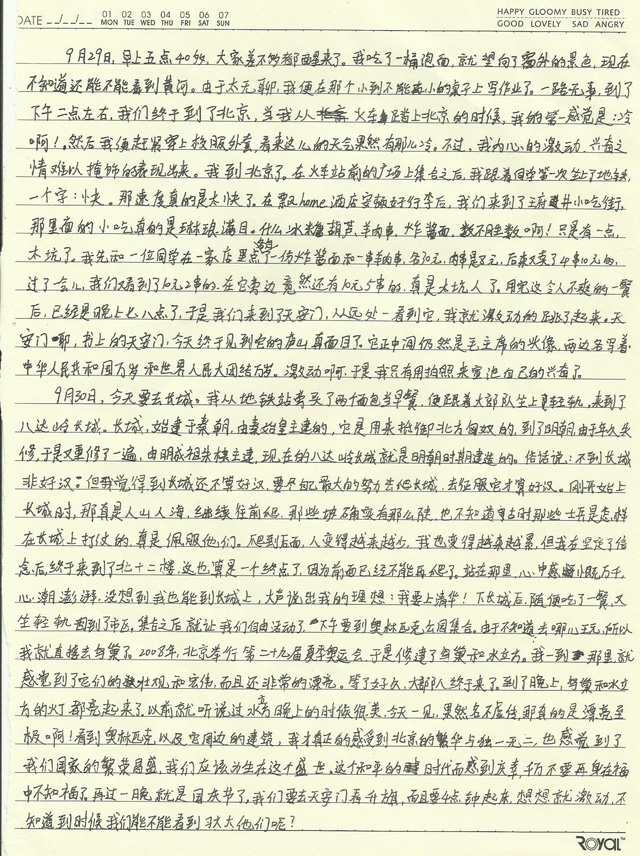 DATE __/__/__
01 02 03 04 05 06 07
MON TUE WED THU FRI SAT SUN
HAPPY GLOOMY BUSY TIRED
GOOD LOVELY SAD ANGRY
9月29日,早上五点40多,大家差不多都醒来了。我吃了一桶泡面,就望向了窗外的景色,现在
不知道还能不能看到黄河。由于太无聊,我便在那个小到不能再小的桌子上写作业了。一路无事,到了
下午二点左右,我们终于到了北京,当我从火车踏上北京的时候,我的第一感觉是:冷
啊!。然后我便赶紧穿上校服外套,看来这儿的天会果然有那么冷。不过,我内心的激动、兴奋之
情难以掩饰的表现出来。我到北京了。在火车站前的广场上集合之后,我跟着同学第一次坐了地铁,
一个字:快。那速度真的是太快了。在飘home酒店安顿好行李后,我们来到了王府井小吃街,
那里面的小吃真的是琳琅满目。什么冰糖葫芦、羊肉串、炸酱面,数不胜数啊!只是有一点,
太坑了。我先和一位同学在一家店里点了一份炸酱面和一串羊肉串,各10元,肉串是元,后来又拿了4串10元的,
过了会儿,我们又看到了10元2串的,在它旁边竟然还有10元5串的,真是太坑人了,用完这令人不爽的一餐
后,已经是晚上七八点了,于是我们来到了天安门,从远处一看到它,我就激动的跳了起来。天
安门耶,书上的天安门,今天终于见到它的庐山真面目了。它正中间仍然是毛主席的头像,两边各写着
中华人民共和国万岁和世界人民大团结万岁。激动啊,于是我只有用拍照来宣泄自己的兴奋了。
9月30日,今天要去长城。我从地铁站旁买了两个面包当早餐,便跟着大部队坐上轻轨,来到了
八达岭长城。长城,始建于秦朝,由秦始皇主建的,它是用来抵御北方匈奴的,到了明朝,由于年久失
修,于是又重修了一遍,由明成祖朱棣主建,现在的八达岭长城就是明朝时期建造的。俗话说:不到长城
非好汉。但我觉得到长城还不算好汉,要尽自己最大的努力去爬长城,去征服它才算好汉。刚开始上
长城时,那真是人山人海,继续往前爬,那些坡确实有那么陡,也不知道古时那些士兵是怎样
在长城上打仗的,真是佩服他们。爬到后面,人变得越来越少,我也变得越来越累,但我在坚定了信
念后,终于来到了北十二楼,这也算是一个终点了,因为前面已经不能再爬了。站在那里,心中感慨万千,
心潮澎湃,没想到我也能到长城上,大声说出我的理想:我要上清华!下长城后,随便吃了一餐,又
坐轻轨到了市区,集合之后就让我们自由活动了,下午要到奥林匹克公园集合。由于不知道去哪儿玩,所以
我就直接去鸟巢了。2008年,北京举行第二十九届夏季奥运会,于是修建了鸟巢和水立方。我一到那里,就
感觉到了它们的壮观和宏伟,而且还非常的漂亮。等了好久,大部队终于来了。到了晚上,鸟巢和水立
方的灯都亮起来了,以前就听说过水立方晚上的时候很美,今天一见,果然名不虚传,那真的是漂亮至
极啊!看到奥林匹克,以及它周边的建筑,我才真正的感受到北京的繁华与独一无二,也感觉到了
我们国家的繁荣昌盛,我们应该为生在这个盛世、这个和平的时代而感到庆幸,千万不要再身在福
中不知福了。再过一晚,就是国庆节了,我们要去天安门看升旗,而且要4点钟起来,想想就激动,不
知道到时候我们能不能看到大大他们呢?
ROYAL™